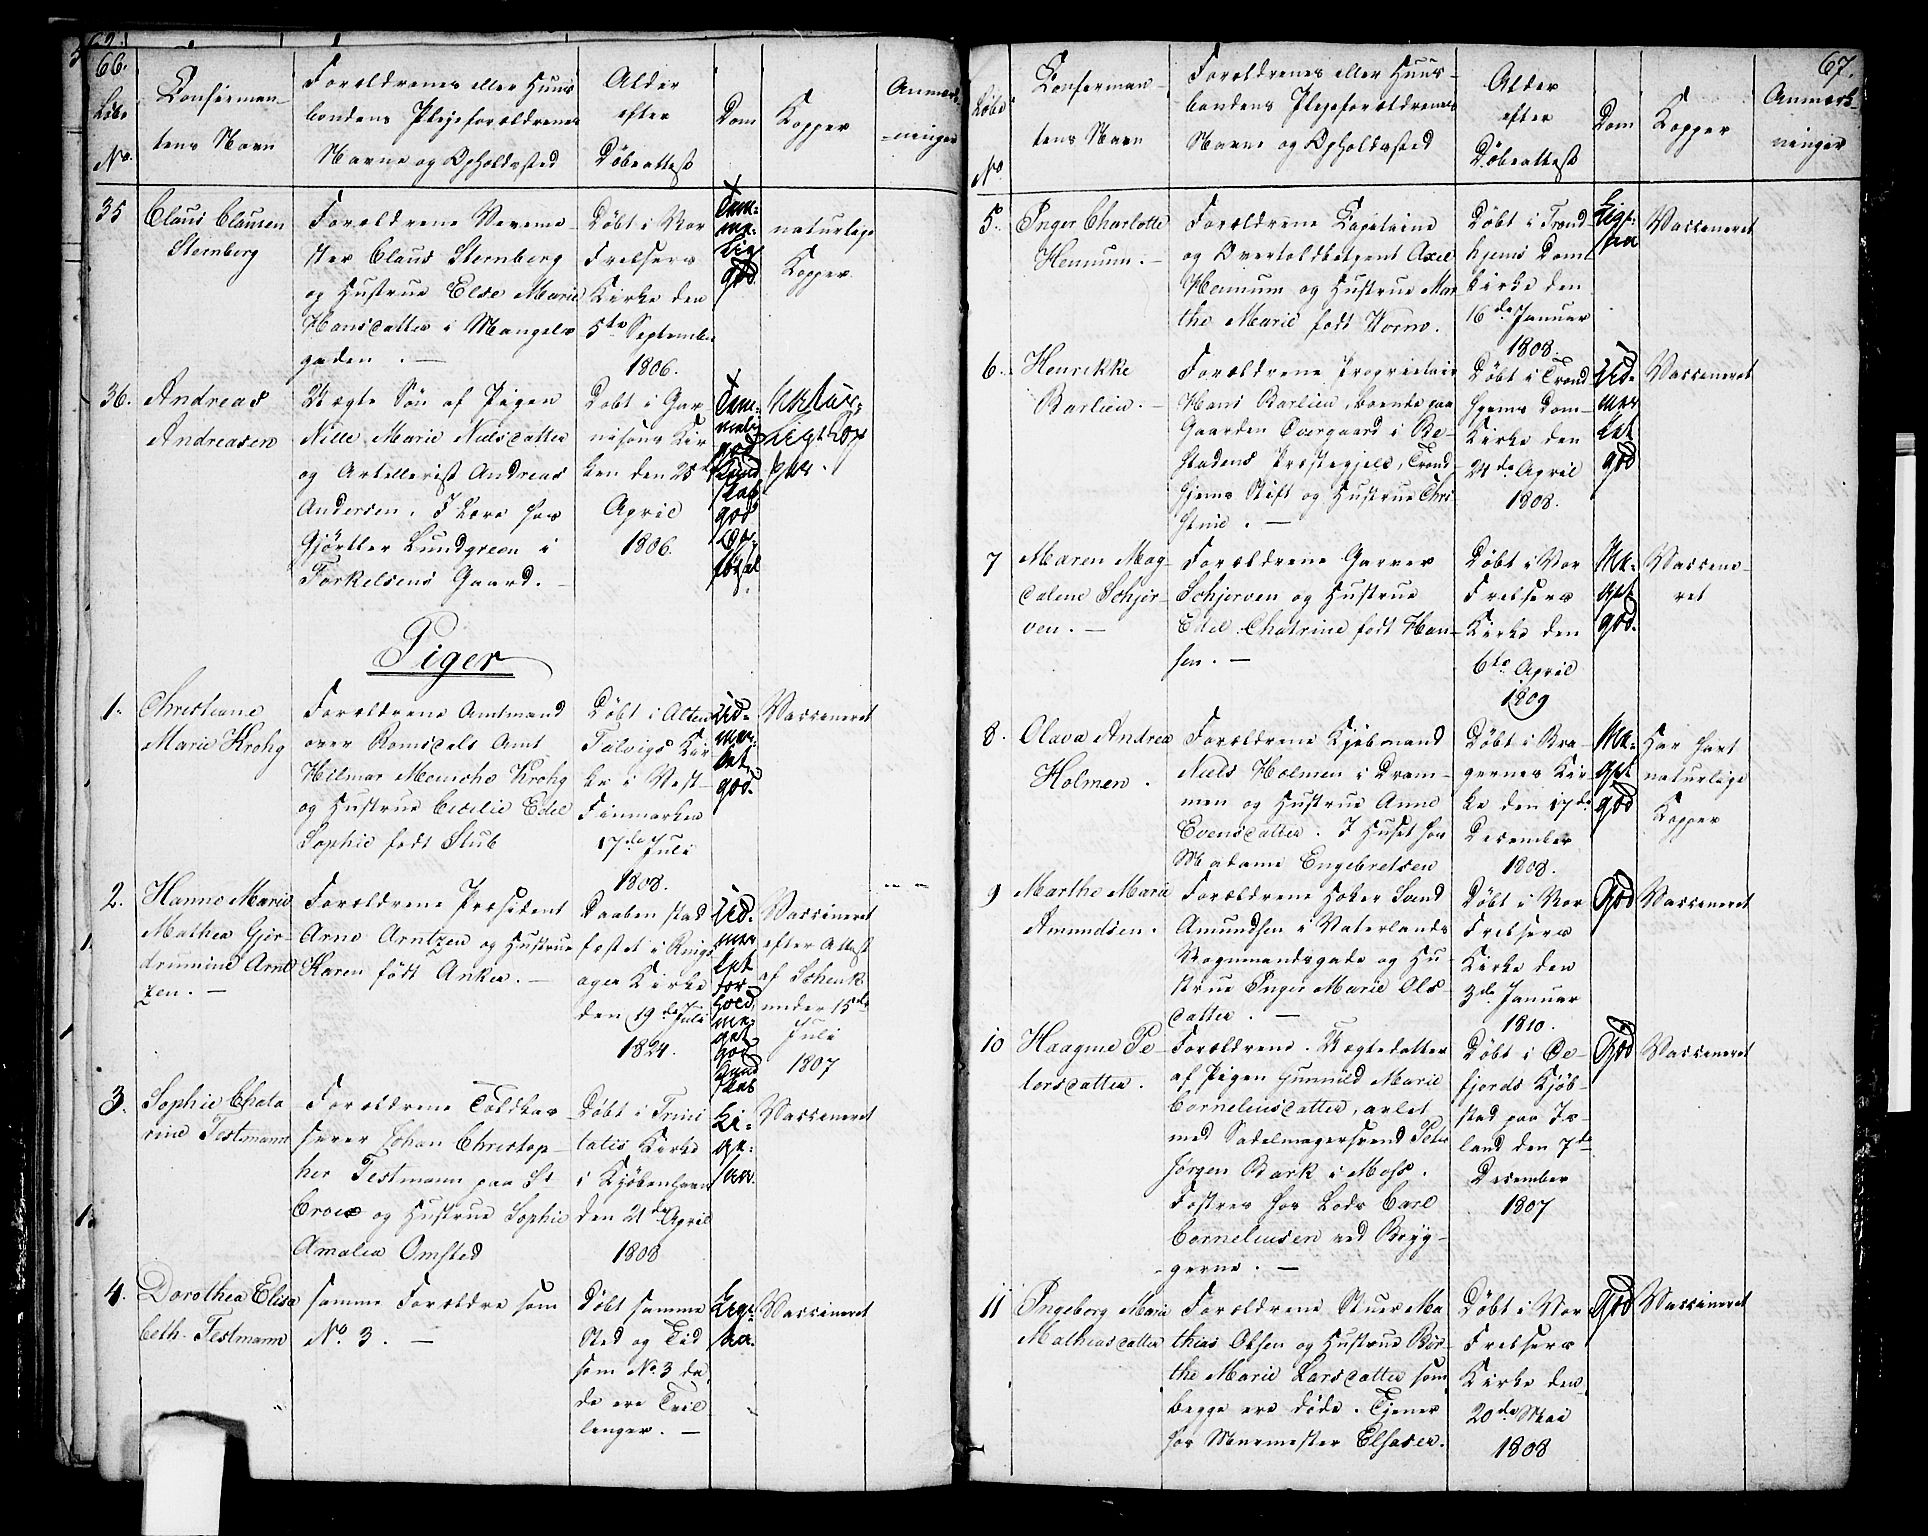 66.
Løbe
No.
Conferman-
tens Navn
Forældrenes eller Huus
bondens Plejeforældrenes
Navne og Opholdssted
Alder
efter
Døbeattest
Dom
Kopper
Anmærk-
ninger
35
Claus Clausen
Sternberg
Forældrene Vveme-
ster Claus Sternberg
og Hustrue Else Marie
Hansdatter i Mangels-
gaden . —
Døbt i Vor
Frelsers
Kirke den
5te Septembr
1806.
Tem-
me-
lig
god.
naturlige
Kopper
36.
Andreas
Andreasen
Uægte Søn af Pigen
Nille Marie Nielsdatter
og Artellerist Andreas
Andersen. I Lære hos
Gjørtler Lundgreen i
Torkelsens Gaard. —
Døbt i Gar
nisons Kir
ken den 25de
April
1806.
Tem-
melig
god
Kund
skab
god
Op-
førsel
naturligt Kop
per.
Piger
1.
Christiane
Marie Krohg
Forældrene Amtmand
over Romsdals Amt
Hilmar Meincke Krohg
og Hustrue Cecilie Edel
Sophie født Stub
Døbt i Alten
Talvigs Kir
ke i Vest-
Finmarken
17de Juli
1808.
Ud-
mær-
ket
god.
Vaccineret
2.
Hanne Marie
Mathea Gjer-
drumine Arnt
zen. —
Forældrene Præsident
Arne Arntzen og Hustrue
Karen født Anker. —
Daaben stad
fæstet i Rings
ager Kirke
den 19de Juli
1824.
Ud-
mær
ket
for-
hold
me-
get
god
Kund
skab
Vaccineret
efter Attest
af Schenk
under 15de
Juli
1807
3.
Sophie Chata
rine Testmann
Forældrene Toldkas-
serer Johan Christop-
her Testmann paa St
Croix og Hustrue Sophie
Amalia Omsted
Døbt i Trini
tatis Kirke
i Kjøbenhavn
den 21de April
1808
Li-
ge-
saa.
Vaccineret
4.
Dorothea Elisa
beth Testmann
samme Forældre som
No. 3. —
Døbt samme
Sted og Tid
som No 3 da
de ere Tvil-
linger. —
Lige-
saa.
Vaccineret
67.
Løbe
No
Conferman-
tens Navn
Forældrenes eller Huus-
bondens Plejeforældrenes
Navne og Opholdssted
Alder
efter
Døbeattest
Dom
Kopper
Anmærk-
ninger
5.
Inger Charlotte
Hennum. —
Forældrene Capitaine
og Overtoldbetjent Axel
Hennum og Hustrue Mar
the Marie født Horne.
Døbt i Trond
hjems Dom
kirke den
16de Januar
1808.
Lige-
saa
Vaccineret
6.
Henrikke
Barlien. —
Forældrene Proprietair
Hans Barlien, boende paa
Gaarden Overgaard i Be-
stadens Præstegjeld, Trond-
hjems Stift og Hustrue Chri
stine. —
Døbt i Trond
hjems Dom-
Kirke den
24de April
1808.
Ud-
mær
ket
god
Vaccineret
7
Maren Mag-
dalene Schjer-
ven. —
Forældrene Garver
Schjerven og Hustrue
Edel Chatrine født Han-
sen. —
Døbt i Vor
Frelsers
Kirke den
6te April
1809
Me-
get
god.
Vaccine-
ret
8.
Olava Andrea
Holmen.
Forældrene Kjøbmand
Niels Holmen i Dram-
men og Hustrue Anne
Evensdatter. I Huset hos
Madame Engebretsen
Døbt i Bra-
gernes Kir-
ke den 17de
December
1808.
Me-
get
god
Har havt
naturlige
Kopper
9
Marthe Marie
Amundsen.
Forældrene Høker Svend
Amundsen i Vaterlands
Vognmandsgade og Hu-
strue Inger Marie Ols-
datter. —
Døbt i Vor
Frelsers
Kirke den
3de Januar
1810.
God
Vaccineret
10
Haagine Pe-
tersdatter.
Forældrene. Uægtedatter
af Pigen Gunnild Marie
Corneliusdatter, avlet
med Sadelmagersvend Peter
Jørgen Bark i Moss.
Fostres hos Lods Carl
Corneliusen ved Bryg-
gerne. —
Døbt i Oe-
fjords Kjøb-
stad paa Is-
land den 7de
December
1807
God
Vaccineret
11
Ingeborg Marie
Mathiasdatter
Forældrene Stuer Ma
thias Olsen og Hustrue Bir-
the Marie Larsdatter som
begge ere døde. Tjener
hos Murmester Elsaser.
Døbt i Vor
Frelsers
Kirke den
20de Mai
1808
God
Vaccineret